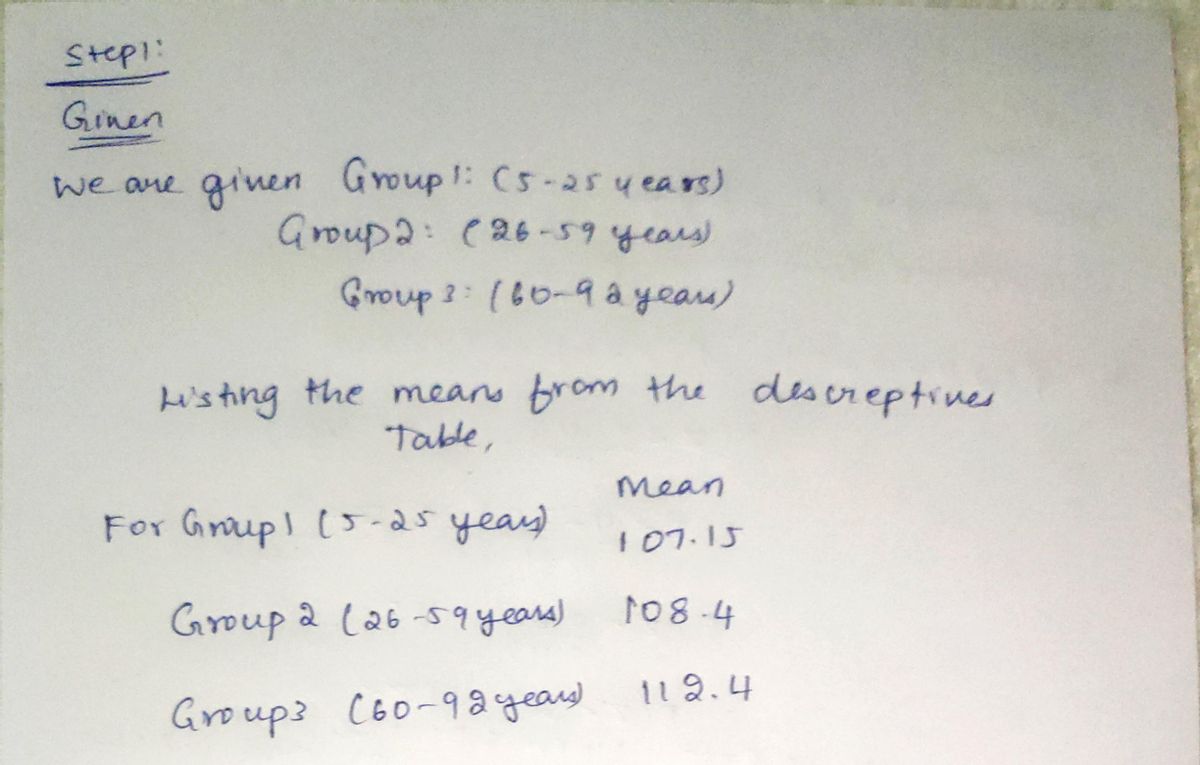 Step1:
Given
We are given Group1: (5-25 years)
Group2: (26-59 years)
Group 3: (60-92 years)
Listing the means from the descreptives
Table,
Mean
For Group1 (5-25 years) 107.15
Group 2 (26-59 years) 108.4
Group3 (60-92 years) 112.4